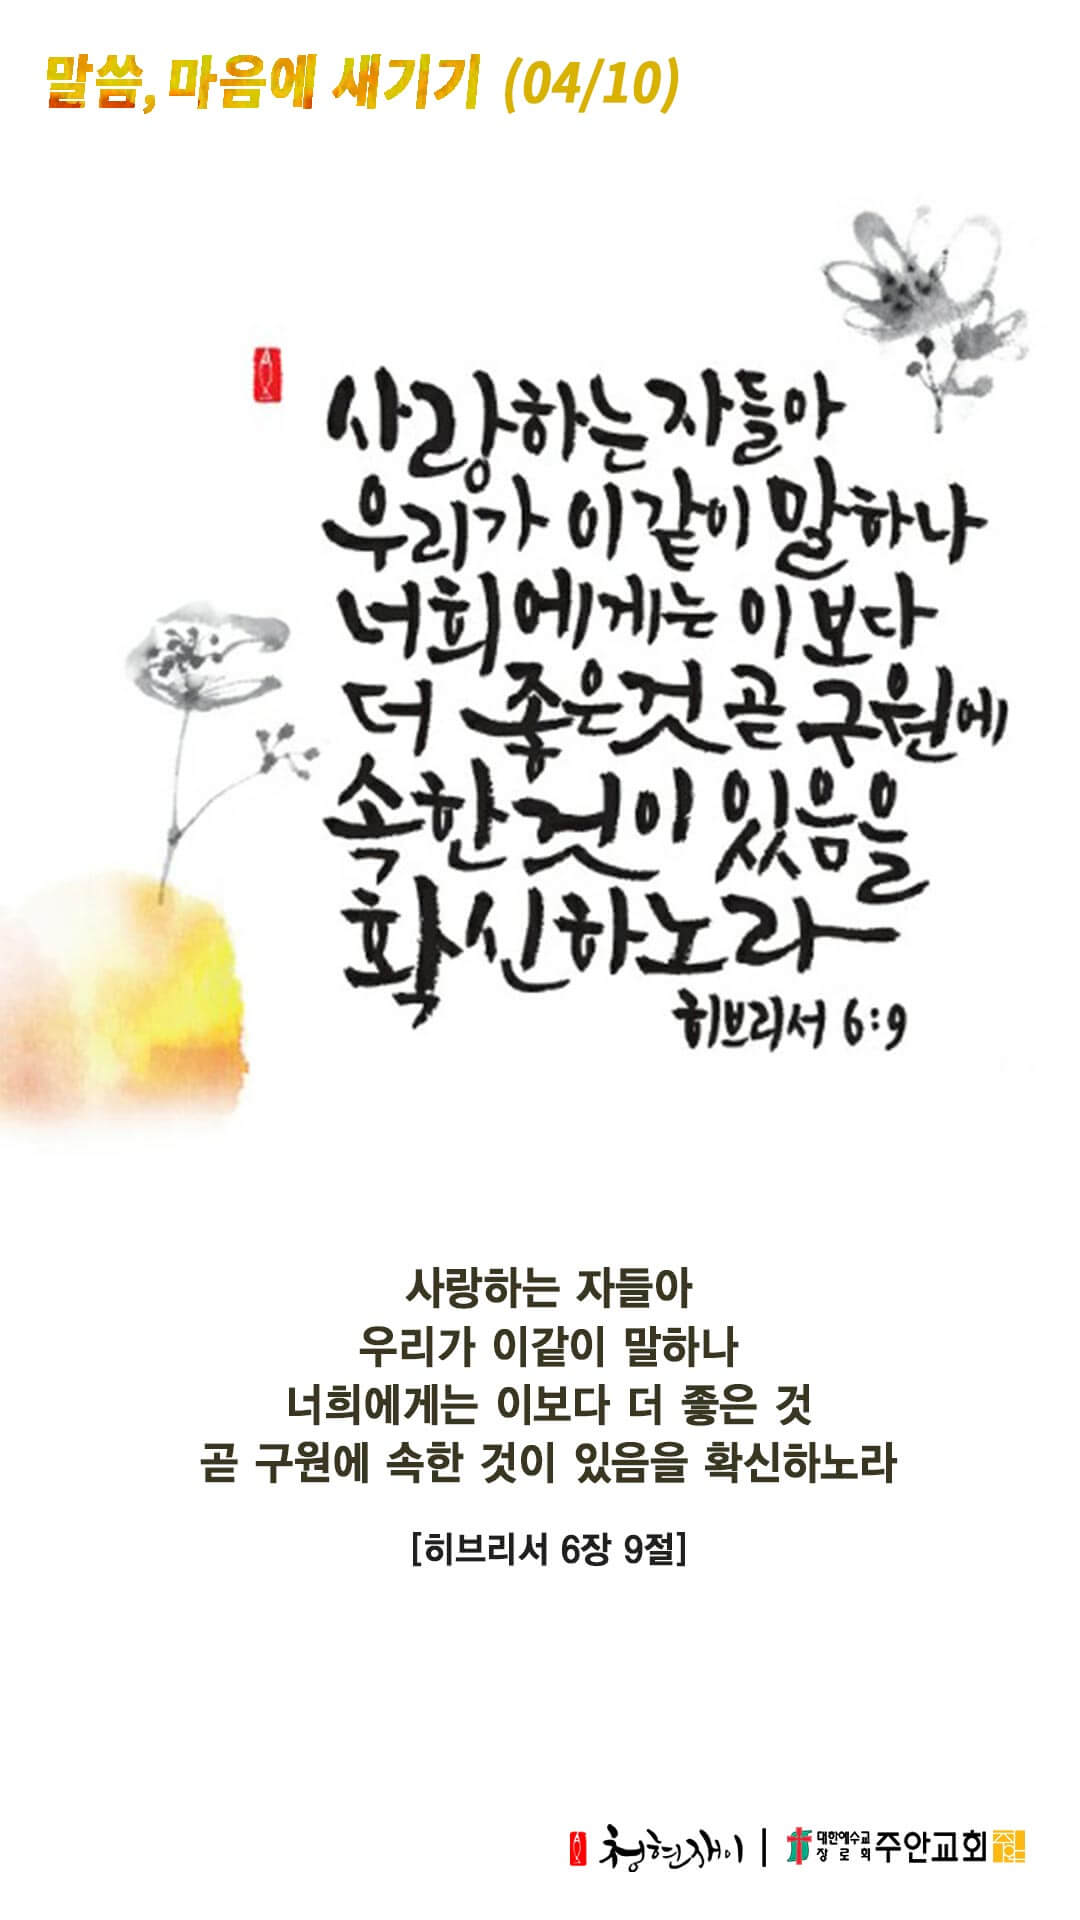 말씀, 마음에 새기기 (04/10)
사랑하는 자들아
우리가 이같이 말하나
너희에게는 이보다
더 좋은것 곧 구원에
속한것이 있음을
확신하노라
히브리서 6:9
사랑하는 자들아
우리가 이같이 말하나
너희에게는 이보다 더 좋은 것
곧 구원에 속한 것이 있음을 확신하노라
[히브리서 6장 9절]
청현재이 | 대한예수교
장로회 주안교회